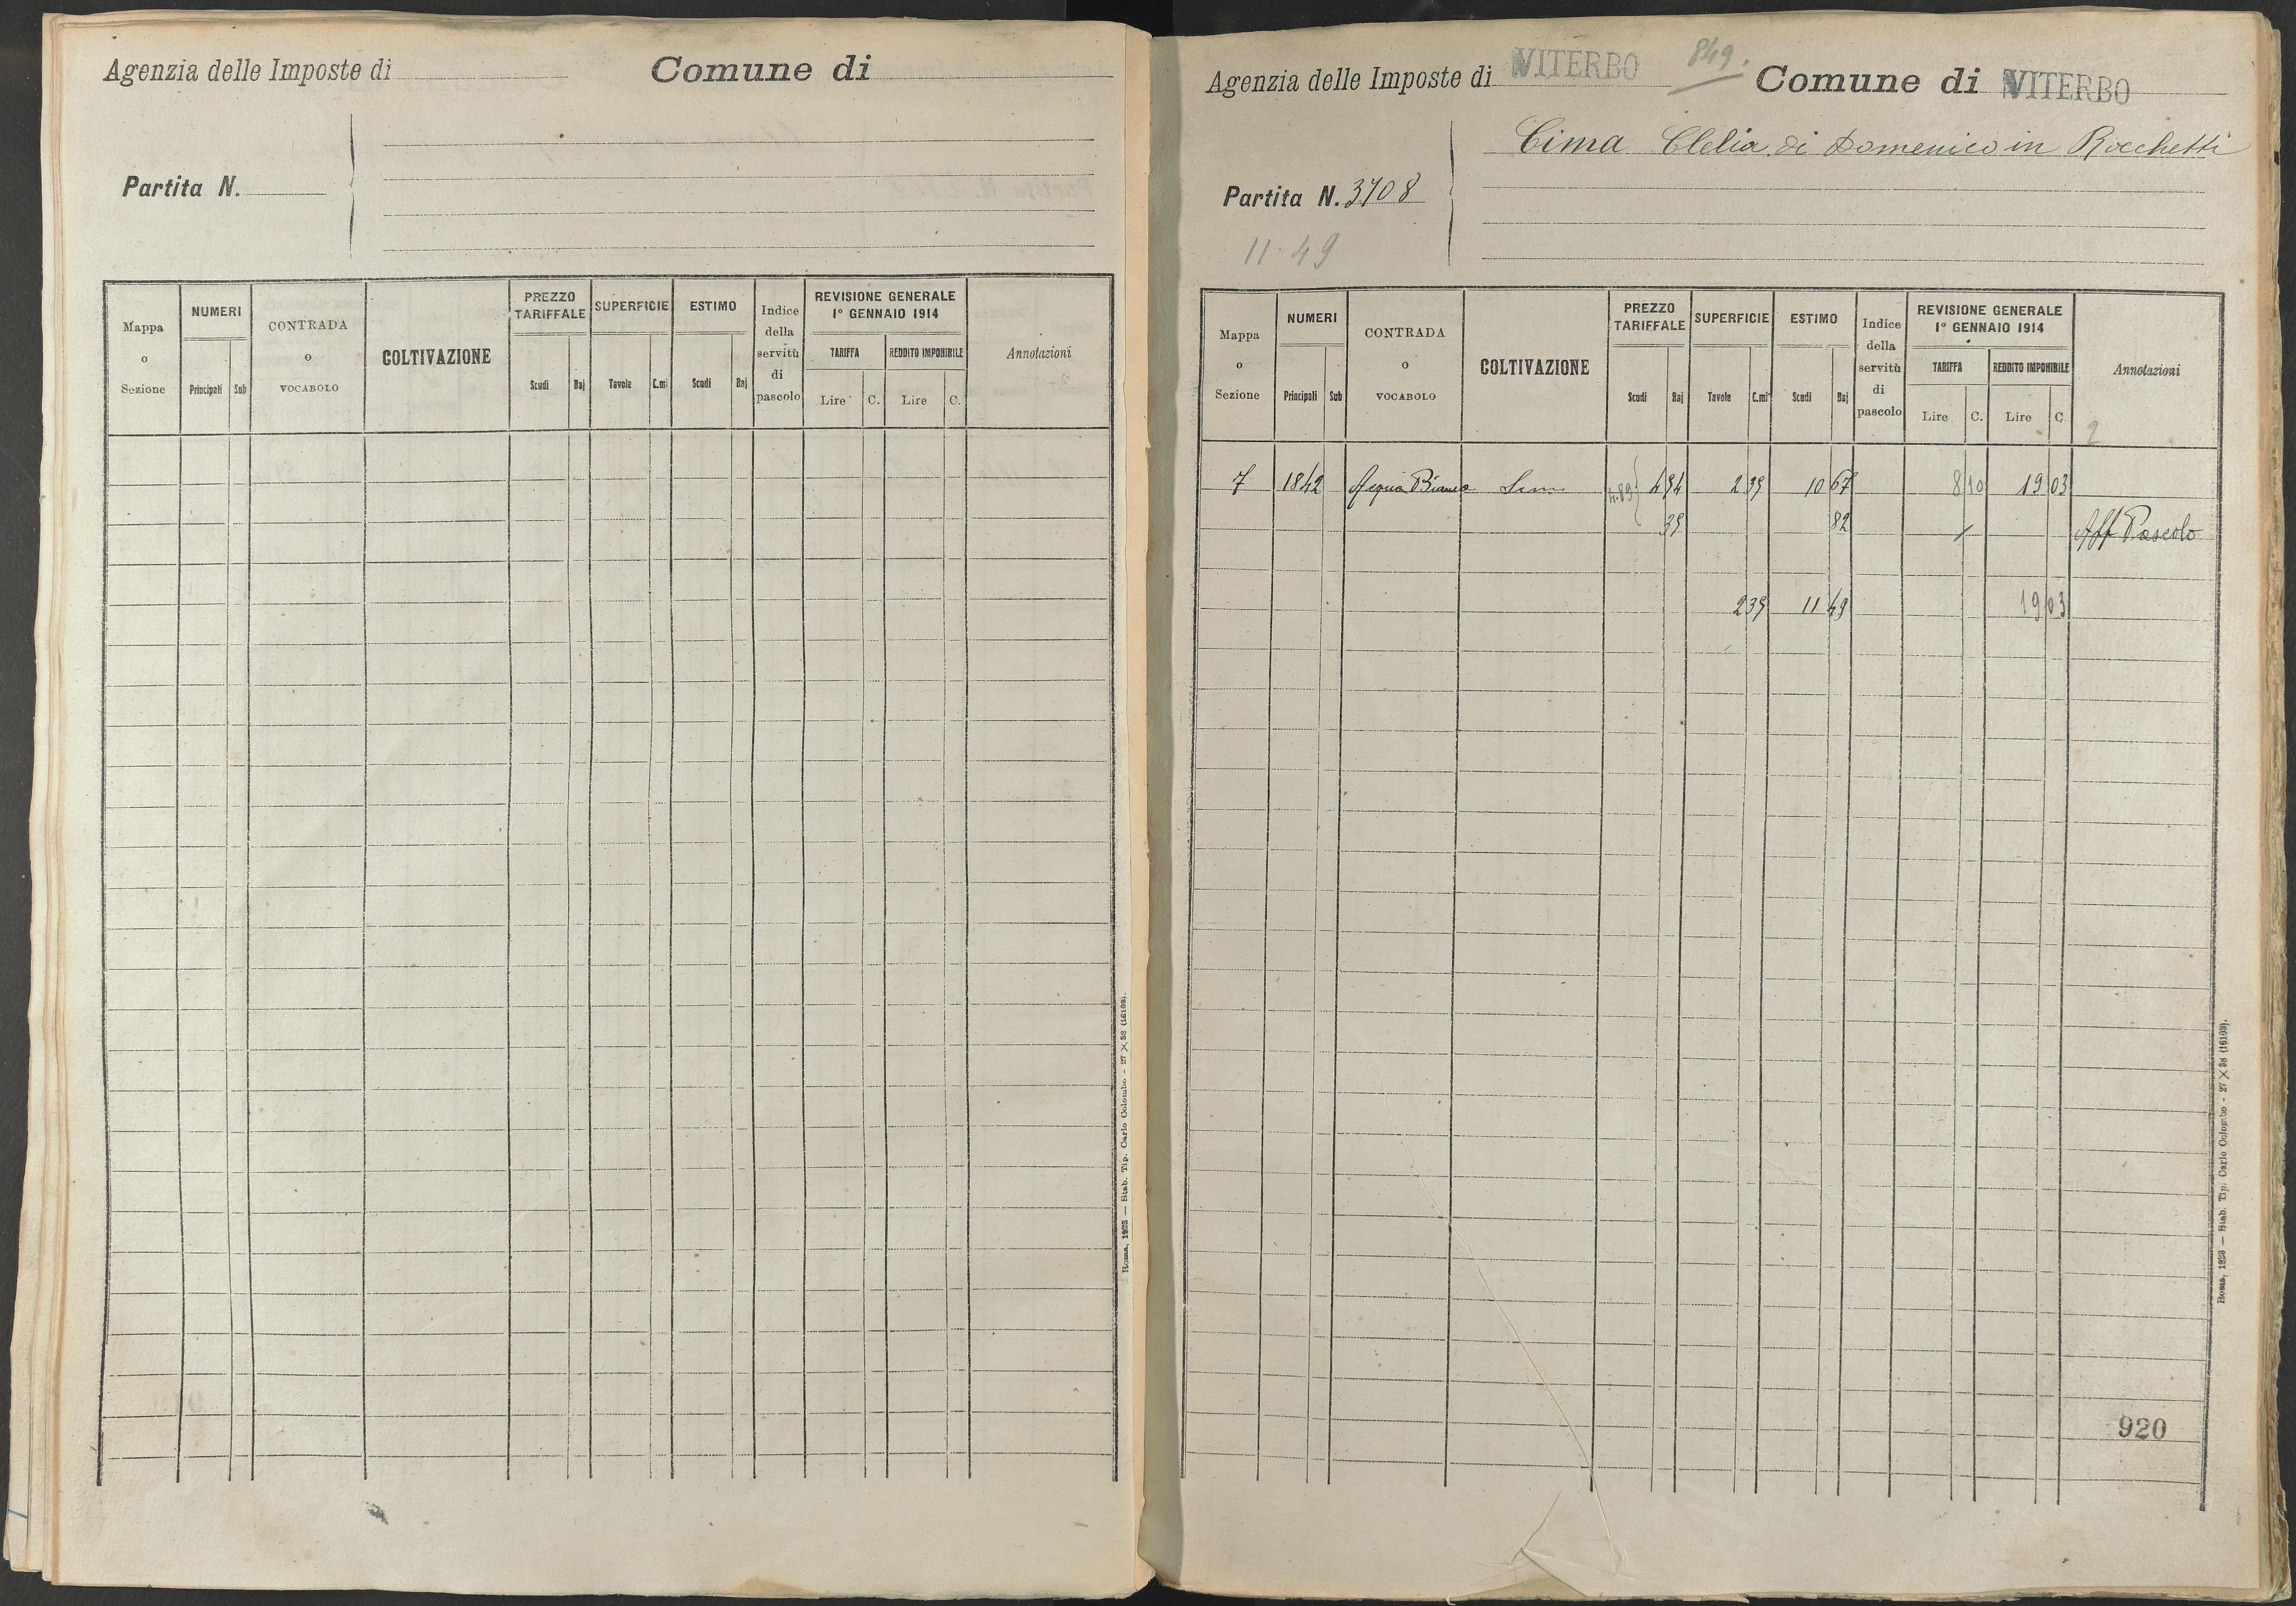 Agenzia delle Imposte di
Comune di
Partita N.
Mappa o Sezione
NUMERI
Principali Sub
CONTRADA o VOCABOLO
COLTIVAZIONE
PREZZO TARIFFALE
Scudi Baj
SUPERFICIE
Tavole C.mi
ESTIMO
Scudi Baj
Indice della servitù di pascolo
REVISIONE GENERALE
1° GENNAIO 1914
TARIFFA REDDITO IMPONIBILE
Lire C. Lire C.
Annotazioni
Roma, 1923 — Stab. Tip. Carlo Colombo - 27 X 38 (16103).
Agenzia delle Imposte di VITERBO 849.
Comune di VITERBO
Cima Clelia di Domenico in Rocchetti
Partita N. 3708
11 49
Mappa o Sezione
NUMERI
Principali Sub
CONTRADA o VOCABOLO
COLTIVAZIONE
PREZZO TARIFFALE
Scudi Baj
SUPERFICIE
Tavole C.mi
ESTIMO
Scudi Baj
Indice della servitù di pascolo
REVISIONE GENERALE
1° GENNAIO 1914
TARIFFA REDDITO IMPONIBILE
Lire C. Lire C.
Annotazioni
2
7 1842 Acqua Bianca 2 39 10 67 8 10 19 03
82 Aff Pascolo
2 39 11 49 19 03
Roma, 1923 — Stab. Tip. Carlo Colombo - 27 X 38 (16103).
920